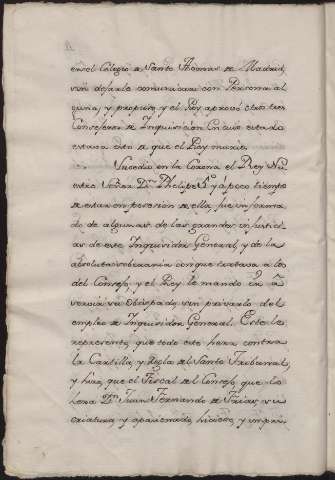 en el Colegio de Santo Thomas de Madrid,
sin dejarle comunicar con Persona al
guna, y propuso, y el Rey aprovó otros tres
Consejeros de Inquisición. En cuio estado
estava esto de que el Rey murió.
Sucedio en la Corona el Rey Nu
estro Señor Dn. Phelipe 5º y a poco tiempo
de estar en posesion de ella, fue informa
do de algunas de las grandes injusticias
de este Inquisidor General, y de la
absoluta soberania con que tratava a los
del Consejo, y el Rey le mando
a su Obispado, sin privarlo del
empleo de Inquisidor General. Este le
represento, que todo esto hera contra
la Cartilla, y Regla del Santo Tribunal,
y hizo, que el Fiscal del Consejo, que lo
hera Dn. Juan Fernando de Frias, su
criatura, y apasionado, hiciese, y impri-